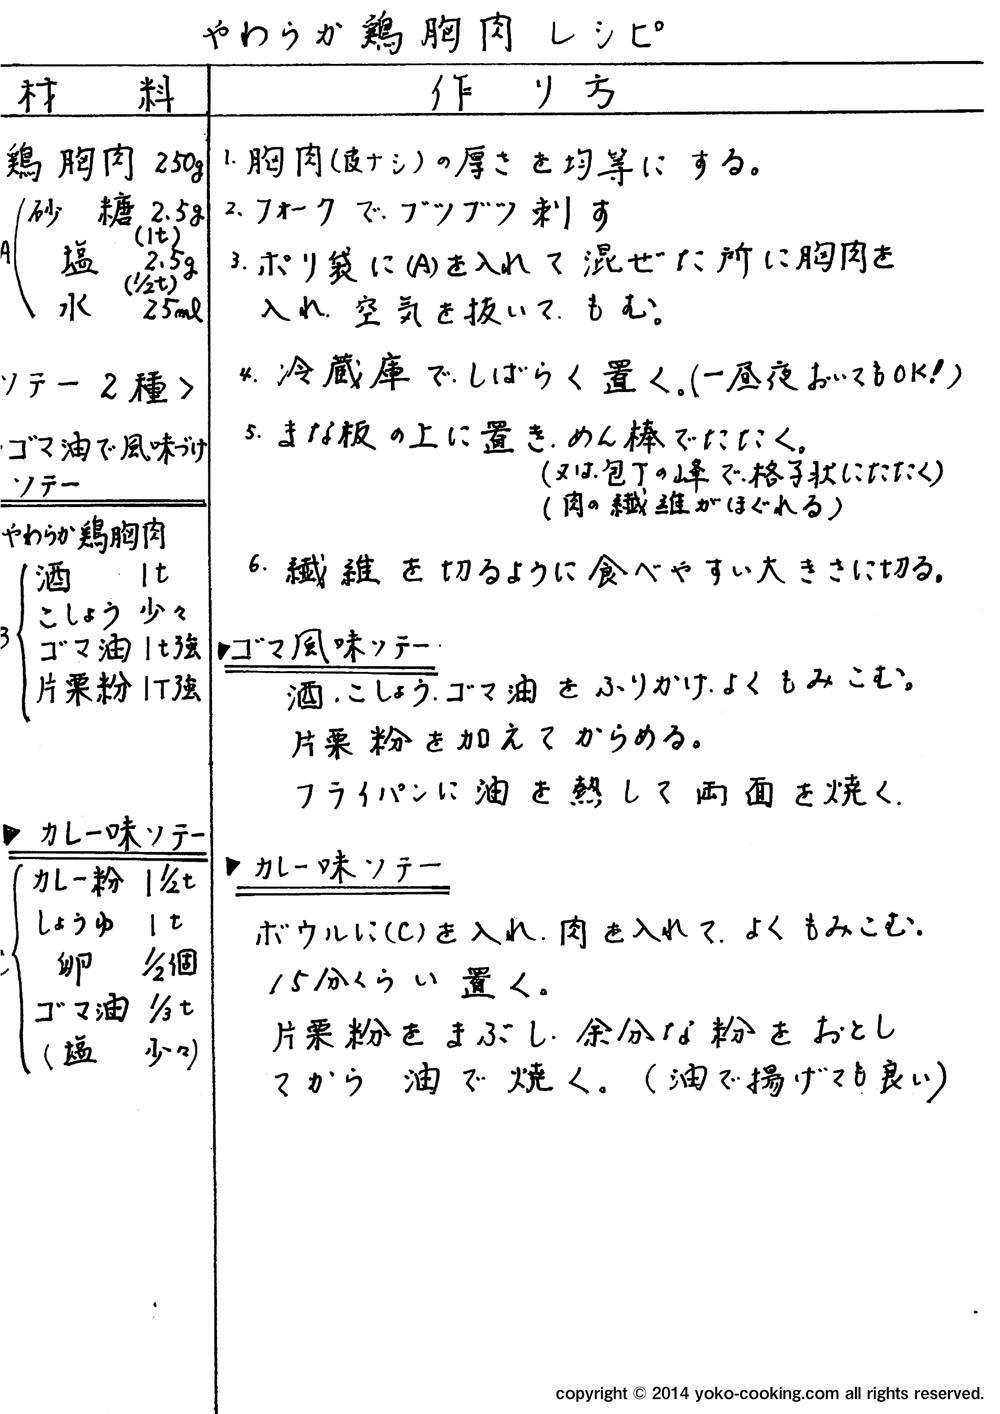 やわらか鶏胸肉レシピ
材 料
鶏胸肉 250g
A
砂糖 2.5g
(1t)
塩 2.5g
(1/2t)
水 25ml
ソテー2種>
・ゴマ油で風味づけ
ソテー
やわらか鶏胸肉
酒 1t
こしょう 少々
ゴマ油 1t強
片栗粉 1T強
▶ カレー味ソテー
カレー粉 1 1/2t
しょうゆ 1t
卵 1/2個
ゴマ油 1/3t
(塩 少々)
作り方
1. 胸肉(皮ナシ)の厚さを均等にする。
2. フォークで、ブツブツ刺す
3. ポリ袋に(A)を入れて混ぜた所に胸肉を
入れ、空気を抜いて、もむ。
4. 冷蔵庫で、しばらく置く。(一昼夜おいてもOK!)
5. まな板の上に置き、めん棒でたたく。
(又は、包丁の峰で、格子状にたたく)
(肉の繊維がほぐれる)
6. 繊維を切るように食べやすい大きさに切る。
▶ゴマ風味ソテー
酒、こしょう、ゴマ油をふりかけ、よくもみこむ。
片栗粉を加えてからめる。
フライパンに油を熱して両面を焼く.
▶カレー味ソテー
ボウルに(C)を入れ、肉を入れて、よくもみこむ。
15分くらい置く。
片栗粉をまぶし、余分な粉をおとし
てから 油で焼く。(油で揚げても良い)
copyright © 2014 yoko-cooking.com all rights reserved.